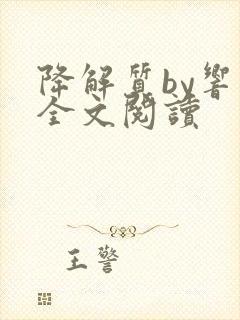 降解質by響
全文閱讀
王警